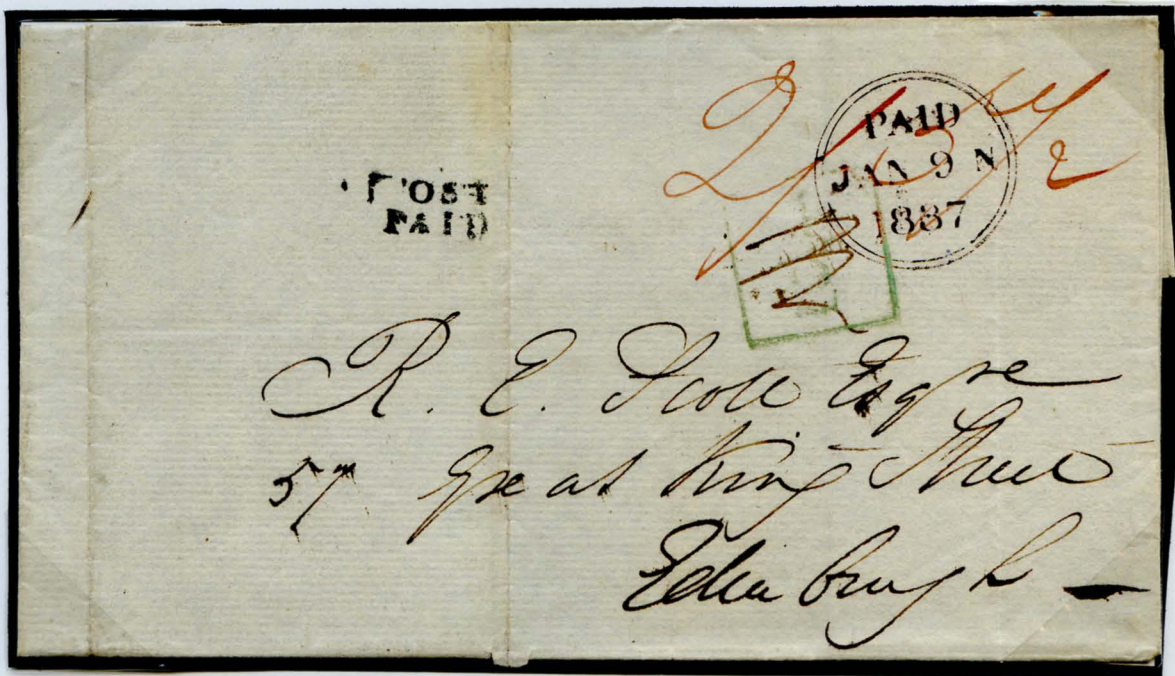 POST
PAID
PAID
JAN 9 N
1837
2
R. E. Scott Esqre
57 Great King Street
Edinburgh